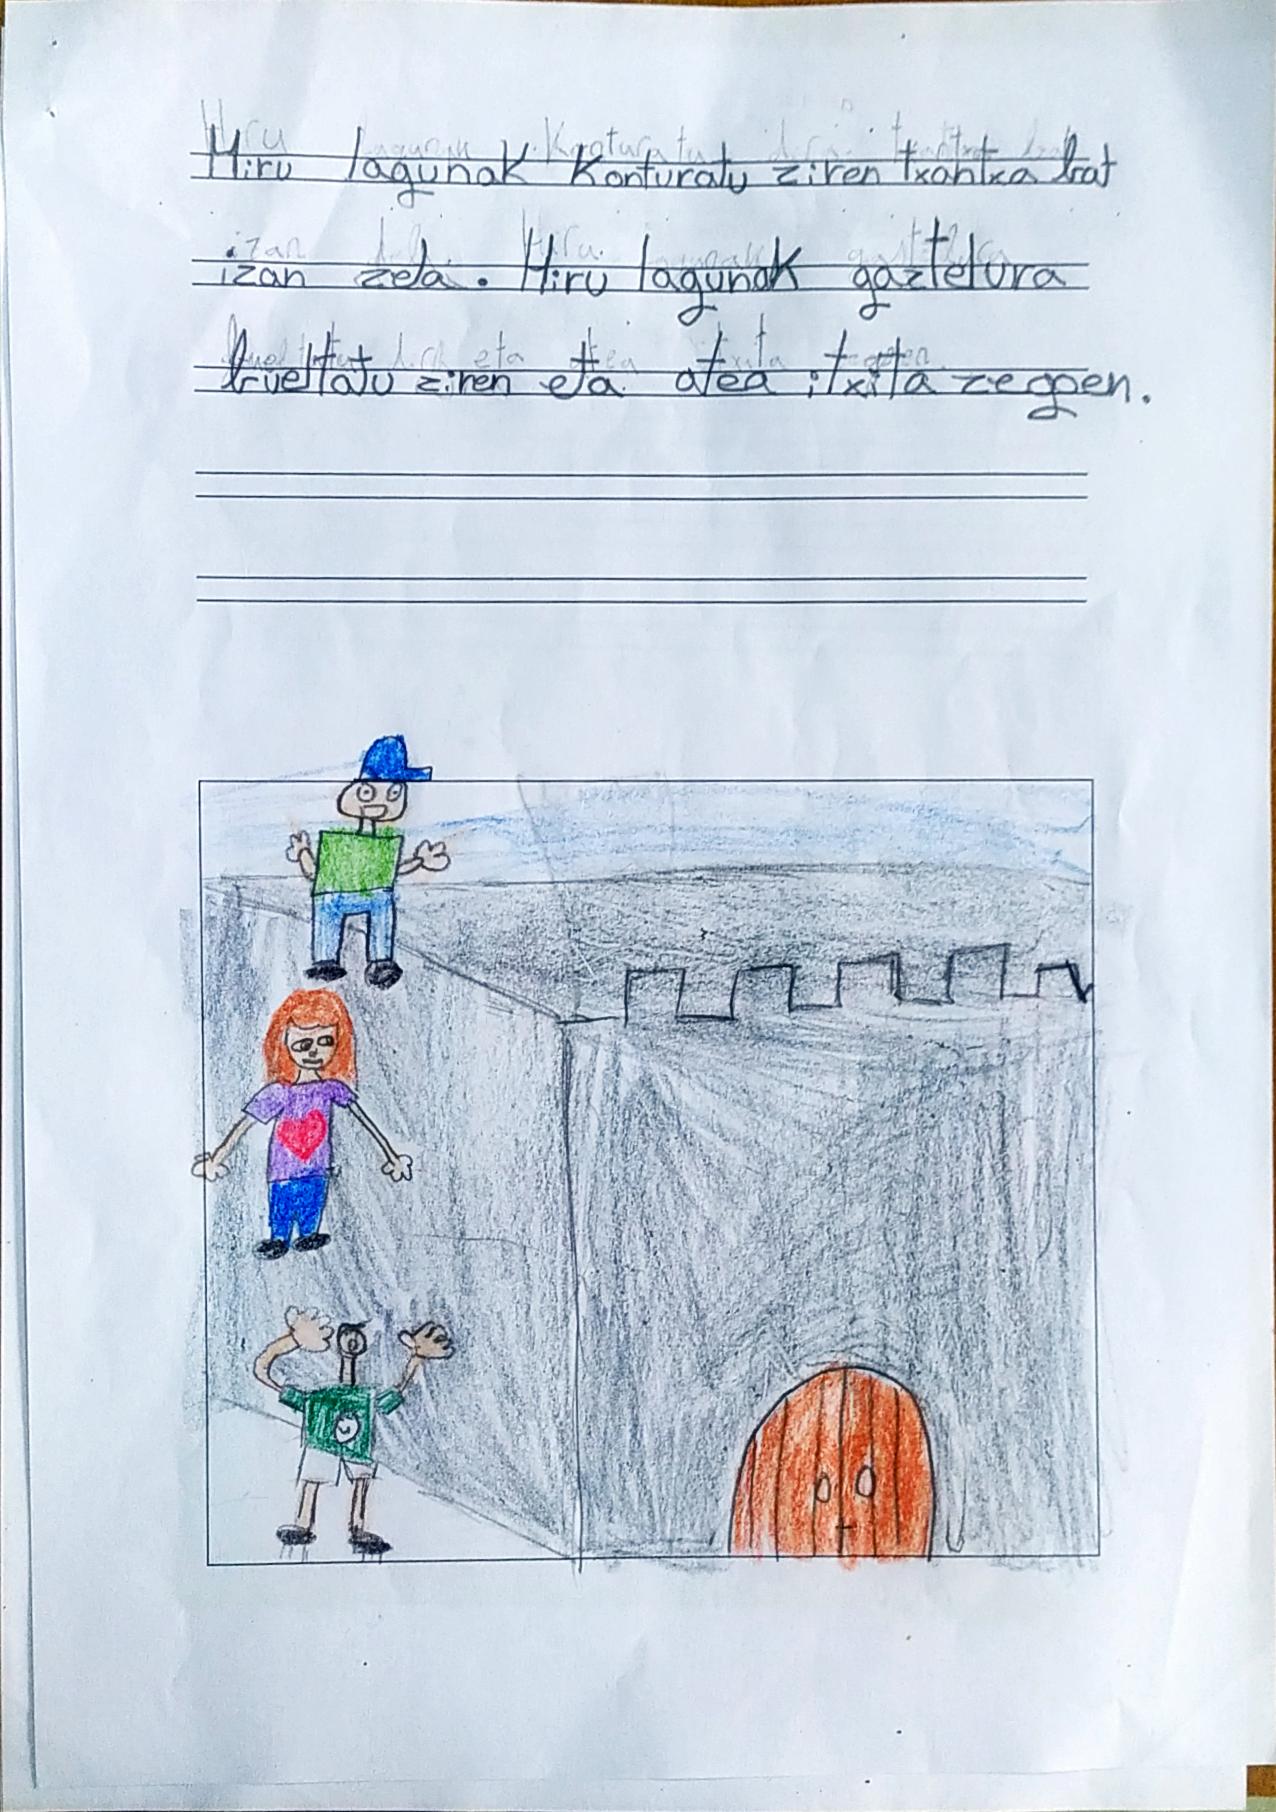 Hiru lagunak konturatu ziren txantxa bat
izan zela. Hiru lagunak gaztelura
bueltatu ziren eta atea itxita zegoen.